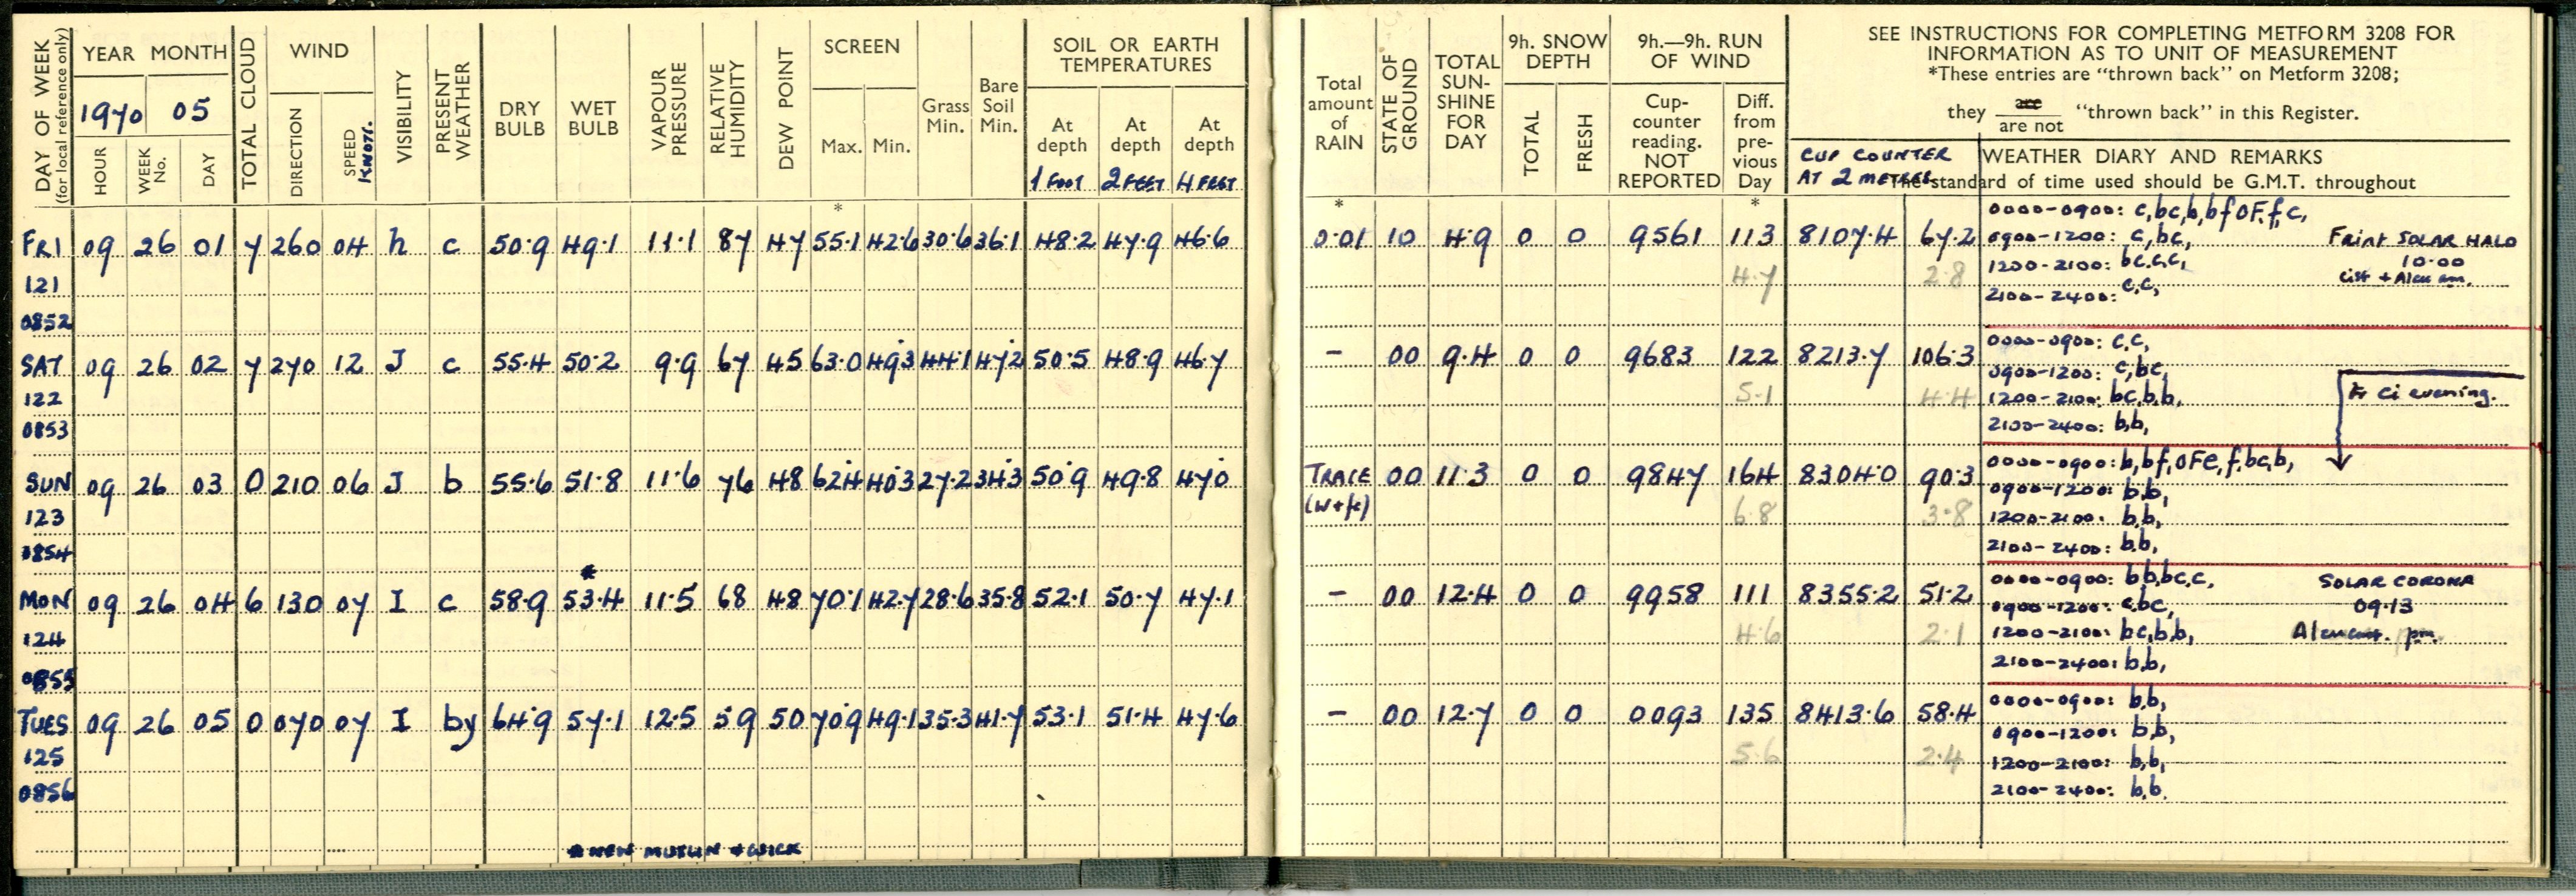 DAY OF WEEK (for local reference only) YEAR MONTH TOTAL CLOUD WIND VISIBILITY PRESENT WEATHER DRY BULB WET BULB VAPOUR PRESSURE RELATIVE HUMIDITY DEW POINT SCREEN Grass Min. Bare Soil Min. SOIL OR EARTH TEMPERATURES
1970 05
HOUR WEEK No. DAY DIRECTION SPEED KNOTS. Max. Min. At depth At depth At depth
1 FOOT 2 FEET 4 FEET
Total amount of RAIN STATE OF GROUND TOTAL SUN-SHINE FOR DAY 9h. SNOW DEPTH 9h.—9h. RUN OF WIND SEE INSTRUCTIONS FOR COMPLETING METFORM 3208 FOR
INFORMATION AS TO UNIT OF MEASUREMENT
*These entries are "thrown back" on Metform 3208;
they are "thrown back" in this Register.
are not
TOTAL FRESH Cup-counter reading. NOT REPORTED Diff. from pre-vious Day
CUP COUNTER WEATHER DIARY AND REMARKS
AT 2 METRES The standard of time used should be G.M.T. throughout
* * *
FRI 09 26 01 7 260 04 h c 50.9 49.1 11.1 87 47 55.1 42.6 30.6 36.1 48.2 47.9 46.6
0.01 10 4.9 0 0 9561 113 8107.4 67.2
4.7 2.8
0000-0900: c,bc,b,bf0F,f,c,
0900-1200: c,bc,
1200-2100: bc,c,c,
2100-2400: c,c,
Faint SOLAR HALO
10.00
121
0852
SAT 09 26 02 7 270 12 J c 55.4 50.2 9.9 67 45 63.0 49.3 44.1 47.2 50.5 48.9 46.7
- 00 9.4 0 0 9683 122 8213.7 106.3
5.1 4.4
0000-0900: c,c,
0900-1200: c,bc,
1200-2100: bc,b,b,
2100-2400: b,b,
Ci evening.
122
0853
SUN 09 26 03 0 210 06 J b 55.6 51.8 11.6 76 48 62.4 40.3 27.2 34.3 50.9 49.8 47.0
TRACE 00 11.3 0 0 9847 164 8304.0 90.3
6.8 3.8
0000-0900: b,bf,0Fe,f,bc,b,
0900-1200: b,b,
1200-2100: b,b,
2100-2400: b,b,
123
0854
*
MON 09 26 04 6 130 07 I c 58.9 53.4 11.5 68 48 70.1 42.7 28.6 35.8 52.1 50.7 47.1
- 00 12.4 0 0 9958 111 8355.2 51.2
4.6 2.1
0000-0900: b,b,bc,c,
0900-1200: c,bc,
1200-2100: bc,b,b,
2100-2400: b,b,
SOLAR CORONA
09.13
pm.
124
0855
TUES 09 26 05 0 070 07 I by 64.9 57.1 12.5 59 50 70.9 49.1 35.3 41.7 53.1 51.4 47.6
- 00 12.7 0 0 0093 135 8413.6 58.4
5.6 2.4
0000-0900: b,b,
0900-1200: b,b,
1200-2100: b,b,
2100-2400: b,b.
125
0856
* NEW MUSLIN + WICK